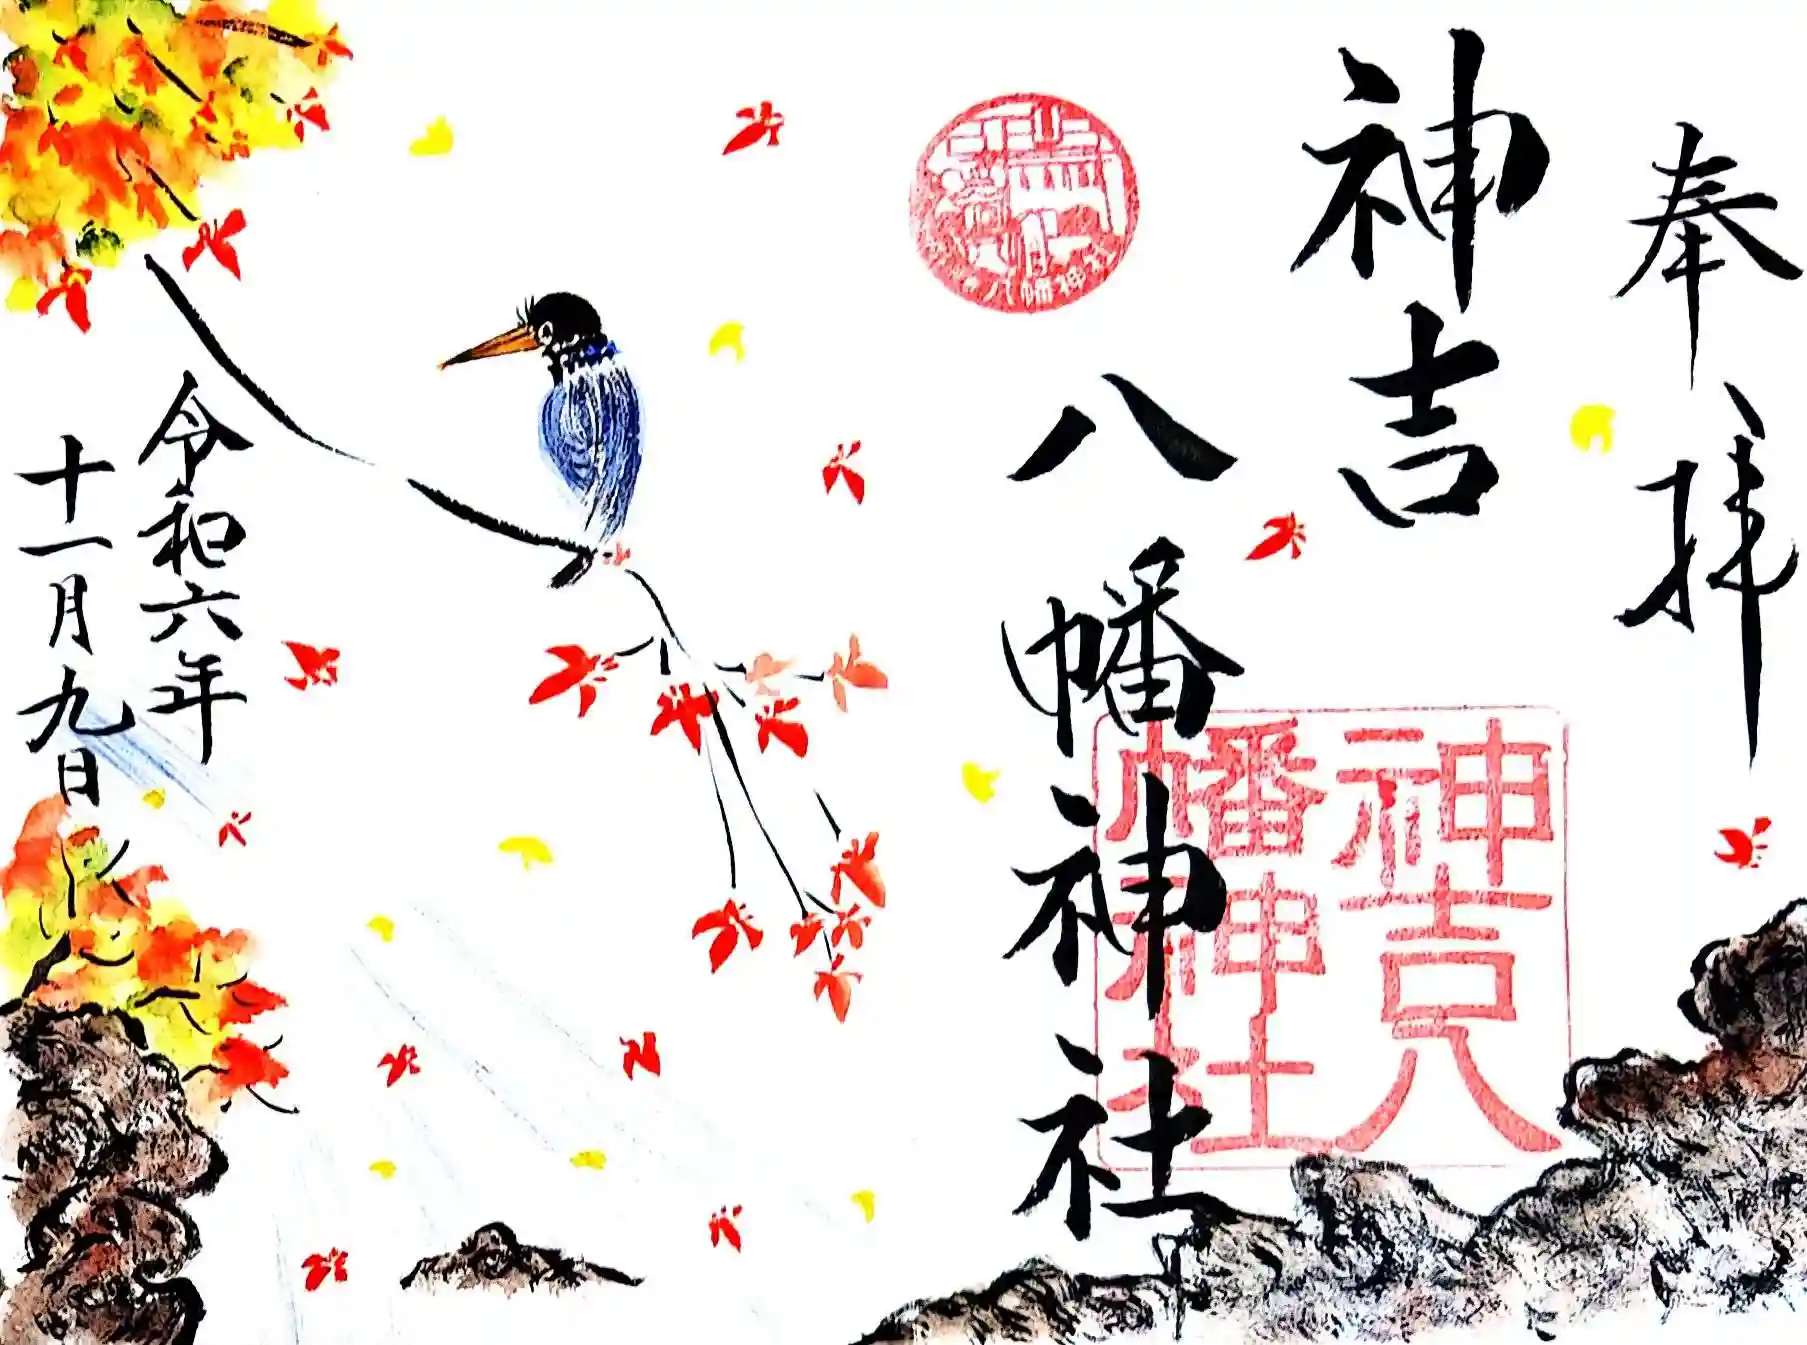 奉拝
神吉
八幡神社
神吉八
幡神社
八幡神社
令和六年
十一月九日